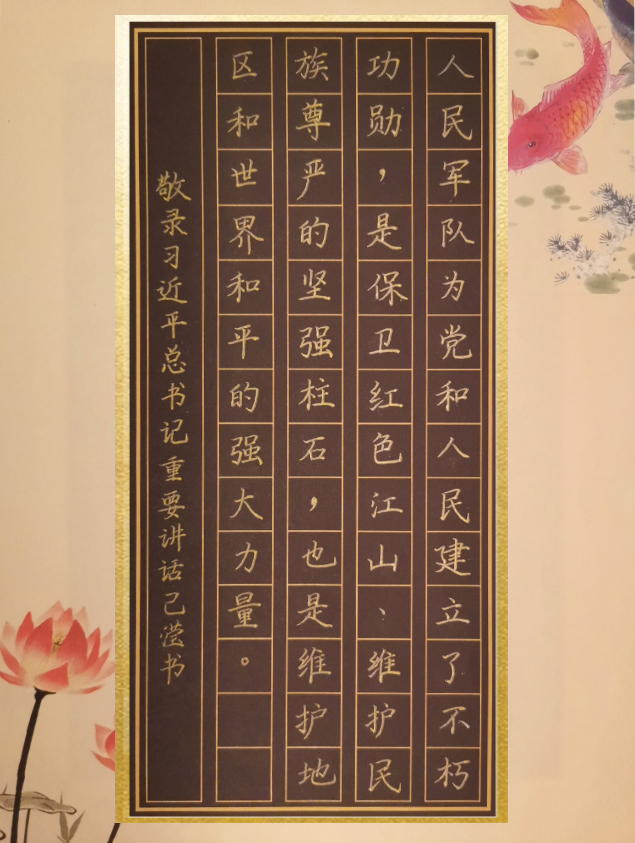 人民军队为党和人民建立了不朽
功勋，是保卫红色江山、维护民
族尊严的坚强柱石，也是维护地
区和世界和平的强大力量。
敬录习近平总书记重要讲话己滢书